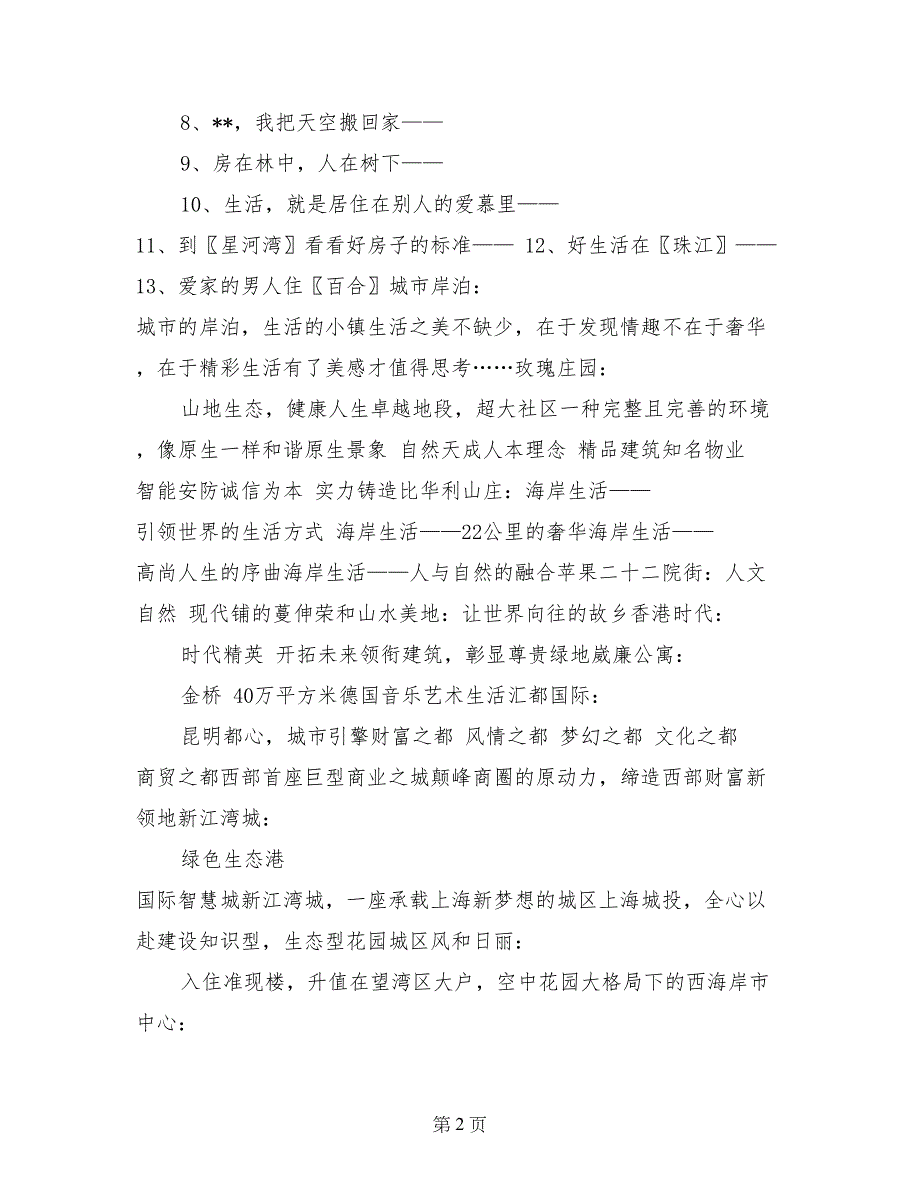 8、**，我把天空搬回家——
9、房在林中，人在树下——
10、生活，就是居住在别人的爱慕里——
11、到〖星河湾〗看看好房子的标准—— 12、好生活在〖珠江〗——
13、爱家的男人住〖百合〗城市岸泊：
城市的岸泊，生活的小镇生活之美不缺少，在于发现情趣不在于奢华
，在于精彩生活有了美感才值得思考……玫瑰庄园：
山地生态，健康人生卓越地段，超大社区一种完整且完善的环境
，像原生一样和谐原生景象 自然天成人本理念 精品建筑知名物业
智能安防诚信为本 实力铸造比华利山庄：海岸生活——
引领世界的生活方式 海岸生活——22公里的奢华海岸生活——
高尚人生的序曲海岸生活——人与自然的融合苹果二十二院街：人文
自然 现代铺的蔓伸荣和山水美地：让世界向往的故乡香港时代：
时代精英 开拓未来领衔建筑，彰显尊贵绿地崴廉公寓：
金桥 40万平方米德国音乐艺术生活汇都国际：
昆明都心，城市引擎财富之都 风情之都 梦幻之都 文化之都
商贸之都西部首座巨型商业之城颠峰商圈的原动力，缔造西部财富新
领地新江湾城：
绿色生态港
国际智慧城新江湾城，一座承载上海新梦想的城区上海城投，全心以
赴建设知识型，生态型花园城区风和日丽：
入住准现楼，升值在望湾区大户，空中花园大格局下的西海岸市
中心：
第 2 页